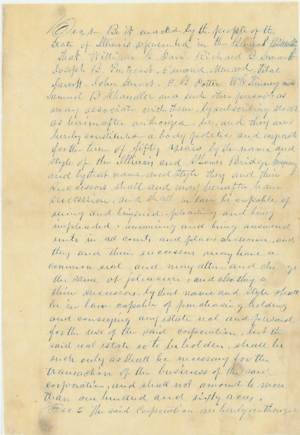 Sec 1 Be it enacted by the people of the
State of Illinois represented in the General Assembly
That William C. Richard
Joseph B. Edward Vital
Jarrott John
Samuel B Chandler and such other persons as
may associate with them by subscribing stock
as hereinafter authorized be, and they are
hereby constituted a body politic and corporate
for the term of fifty years, by the name and
style of the Illinois and St Louis Bridge Company
and by that name and style they and their
successors shall and may hereafter have
succession, and shall in law be capable of
suing and being sued pleading and being
impleaded, answering and being answered
unto in all courts and places whatsoever, and
they and their successors may have a
common seal and may alter and change
the same at pleasure, and also they and
their successors by that name and style shall
be in law capable of purchasing, holding
and conveying any estate real and personal
for the use of the said corporation, but the
said real estate so to be holden, shall be
such only as shall be necessary for the
transaction of the business of the said
corporation, and shall not amount to more
than one hundred and sixty acres,
Sec 2 The said Corporation are hereby authorized